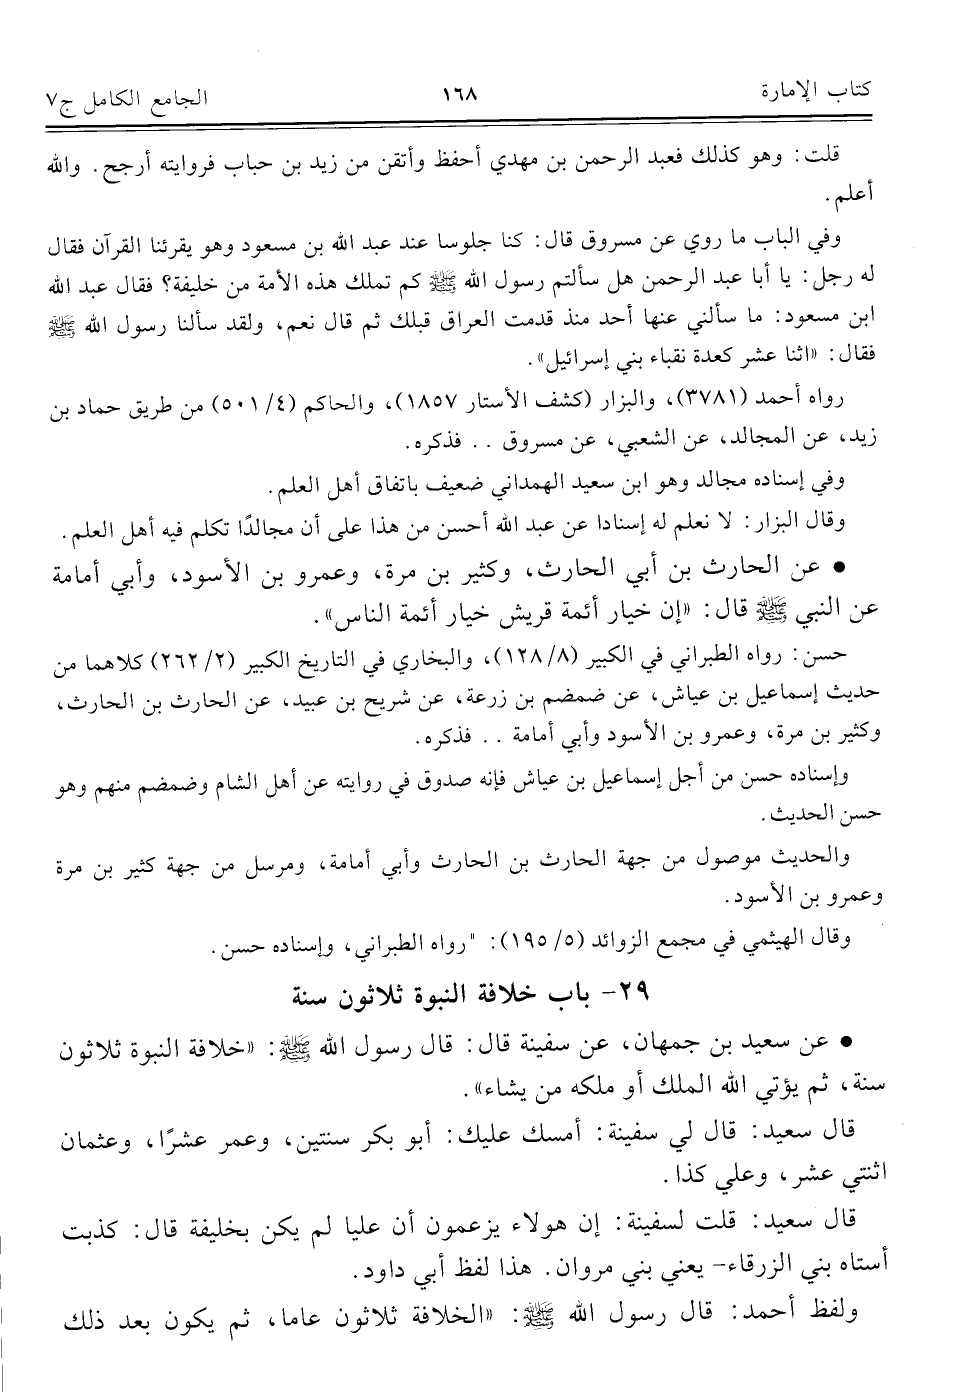 كتاب الإمارة ١٦٨ الجامع الكامل ج٧
قلت: وهو كذلك فعبد الرحمن بن مهدي أحفظ وأتقن من زيد بن حباب فروايته أرجح. والله
أعلم.
وفي الباب ما روي عن مسروق قال: كنا جلوسا عند عبد الله بن مسعود وهو يقرئنا القرآن فقال
له رجل: يا أبا عبد الرحمن هل سألتم رسول الله ﷺ كم تملك هذه الأمة من خليفة؟ فقال عبد الله
ابن مسعود: ما سألني عنها أحد منذ قدمت العراق قبلك ثم قال نعم، ولقد سألنا رسول الله ﷺ
فقال: «اثنا عشر كعدة نقباء بني إسرائيل».
رواه أحمد (٣٧٨١)، والبزار (كشف الأستار ١٨٥٧)، والحاكم (٤/ ٥٠١) من طريق حماد بن
زيد، عن المجالد، عن الشعبي، عن مسروق .. فذكره.
وفي إسناده مجالد وهو ابن سعيد الهمداني ضعيف باتفاق أهل العلم.
وقال البزار: لا نعلم له إسنادا عن عبد الله أحسن من هذا على أن مجالدًا تكلم فيه أهل العلم.
● عن الحارث بن أبي الحارث، وكثير بن مرة، وعمرو بن الأسود، وأبي أمامة
عن النبي ﷺ قال: «إن خيار أئمة قريش خيار أئمة الناس».
حسن: رواه الطبراني في الكبير (٨/ ١٢٨)، والبخاري في التاريخ الكبير (٢/ ٢٦٢) كلاهما من
حديث إسماعيل بن عياش، عن ضمضم بن زرعة، عن شريح بن عبيد، عن الحارث بن الحارث،
وكثير بن مرة، وعمرو بن الأسود وأبي أمامة .. فذكره.
وإسناده حسن من أجل إسماعيل بن عياش فإنه صدوق في روايته عن أهل الشام وضمضم منهم وهو
حسن الحديث.
والحديث موصول من جهة الحارث بن الحارث وأبي أمامة، ومرسل من جهة كثير بن مرة
وعمرو بن الأسود.
وقال الهيثمي في مجمع الزوائد (٥/ ١٩٥): "رواه الطبراني، وإسناده حسن.
٢٩- باب خلافة النبوة ثلاثون سنة
● عن سعيد بن جمهان، عن سفينة قال: قال رسول الله ﷺ: «خلافة النبوة ثلاثون
سنة، ثم يؤتي الله الملك أو ملكه من يشاء».
قال سعيد: قال لي سفينة: أمسك عليك: أبو بكر سنتين، وعمر عشرًا، وعثمان
اثنتي عشر، وعلي كذا.
قال سعيد: قلت لسفينة: إن هولاء يزعمون أن عليا لم يكن بخليفة قال: كذبت
أستاه بني الزرقاء- يعني بني مروان. هذا لفظ أبي داود.
ولفظ أحمد: قال رسول الله ﷺ: «الخلافة ثلاثون عاما، ثم يكون بعد ذلك